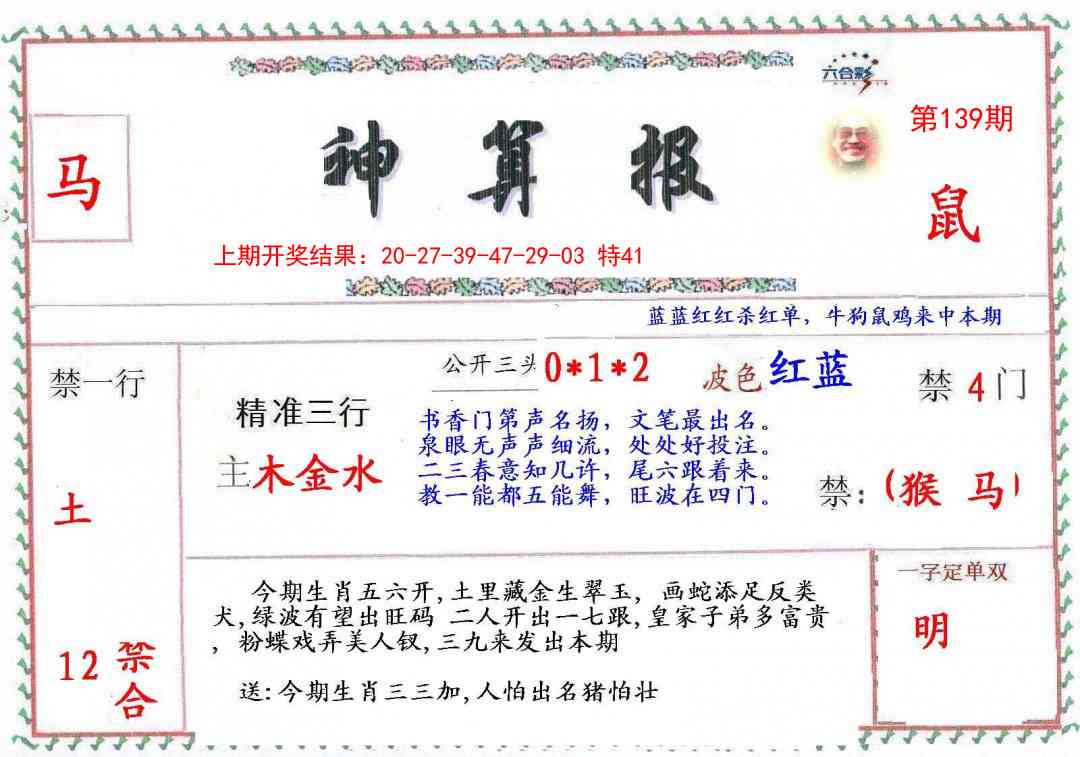 六合彩
第139期
马
神算报
鼠
上期开奖结果：20-27-39-47-29-03 特41
蓝蓝红红杀红单，牛狗鼠鸡来中本期
禁一行
土
12 禁
合
精准三行
主木金水
公开三头 0*1*2 波色 红蓝
书香门第声名扬，文笔最出名。
泉眼无声声细流，处处好投注。
二三春意知几许，尾六跟着来。
教一能都五能舞，旺波在四门。
禁 4 门
禁：(猴 马)
今期生肖五六开,土里藏金生翠玉, 画蛇添足反类
犬,绿波有望出旺码 二人开出一七跟,皇家子弟多富贵
, 粉蝶戏弄美人钗,三九来发出本期
送:今期生肖三三加,人怕出名猪怕壮
一字定单双
明